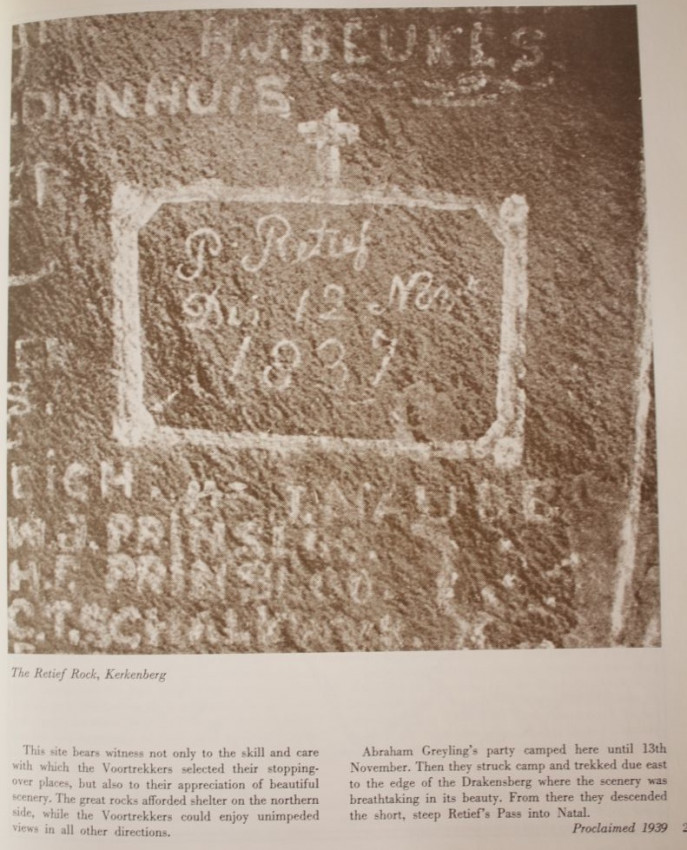 H.J. BEUKES
P. Retief
Den 12 Nov.
1837
EICH
J. NAUDE
W.J. PRINSLOO
H.F. PRINSLOO.
The Retief Rock, Kerkenberg
This site bears witness not only to the skill and care
with which the Voortrekkers selected their stopping-
over places, but also to their appreciation of beautiful
scenery. The great rocks afforded shelter on the northern
side, while the Voortrekkers could enjoy unimpeded
views in all other directions.
Abraham Greyling's party camped here until 13th
November. Then they struck camp and trekked due east
to the edge of the Drakensberg where the scenery was
breathtaking in its beauty. From there they descended
the short, steep Retief's Pass into Natal.
Proclaimed 1939